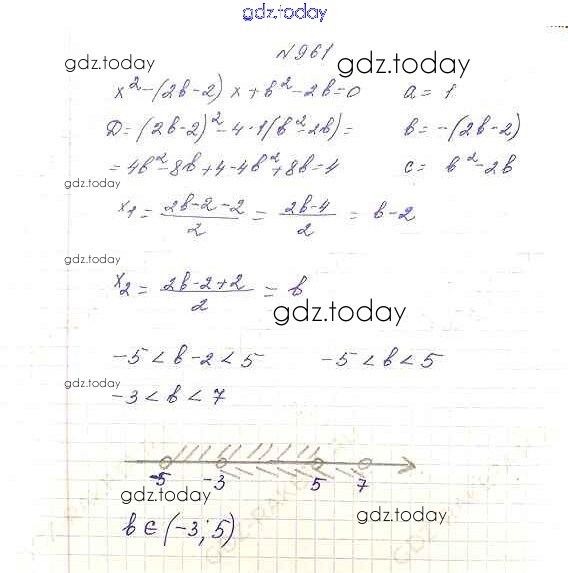 gdz.today
№961
gdz.today gdz.today
x² - (2b-2) x + b² - 2b = 0 a = 1
D = (2b-2)² - 4·1(b² - 2b) = b = -(2b-2)
= 4b² - 8b + 4 - 4b² + 8b = 4 c = b² - 2b
gdz.today
x₁ = (2b-2-2)/2 = (2b-4)/2 = b-2
gdz.today
x₂ = (2b-2+2)/2 = b
gdz.today
-5 < b-2 < 5 -5 < b < 5
gdz.today
-3 < b < 7
-5 -3 5 7
gdz.today
b ∈ (-3; 5)
gdz.today